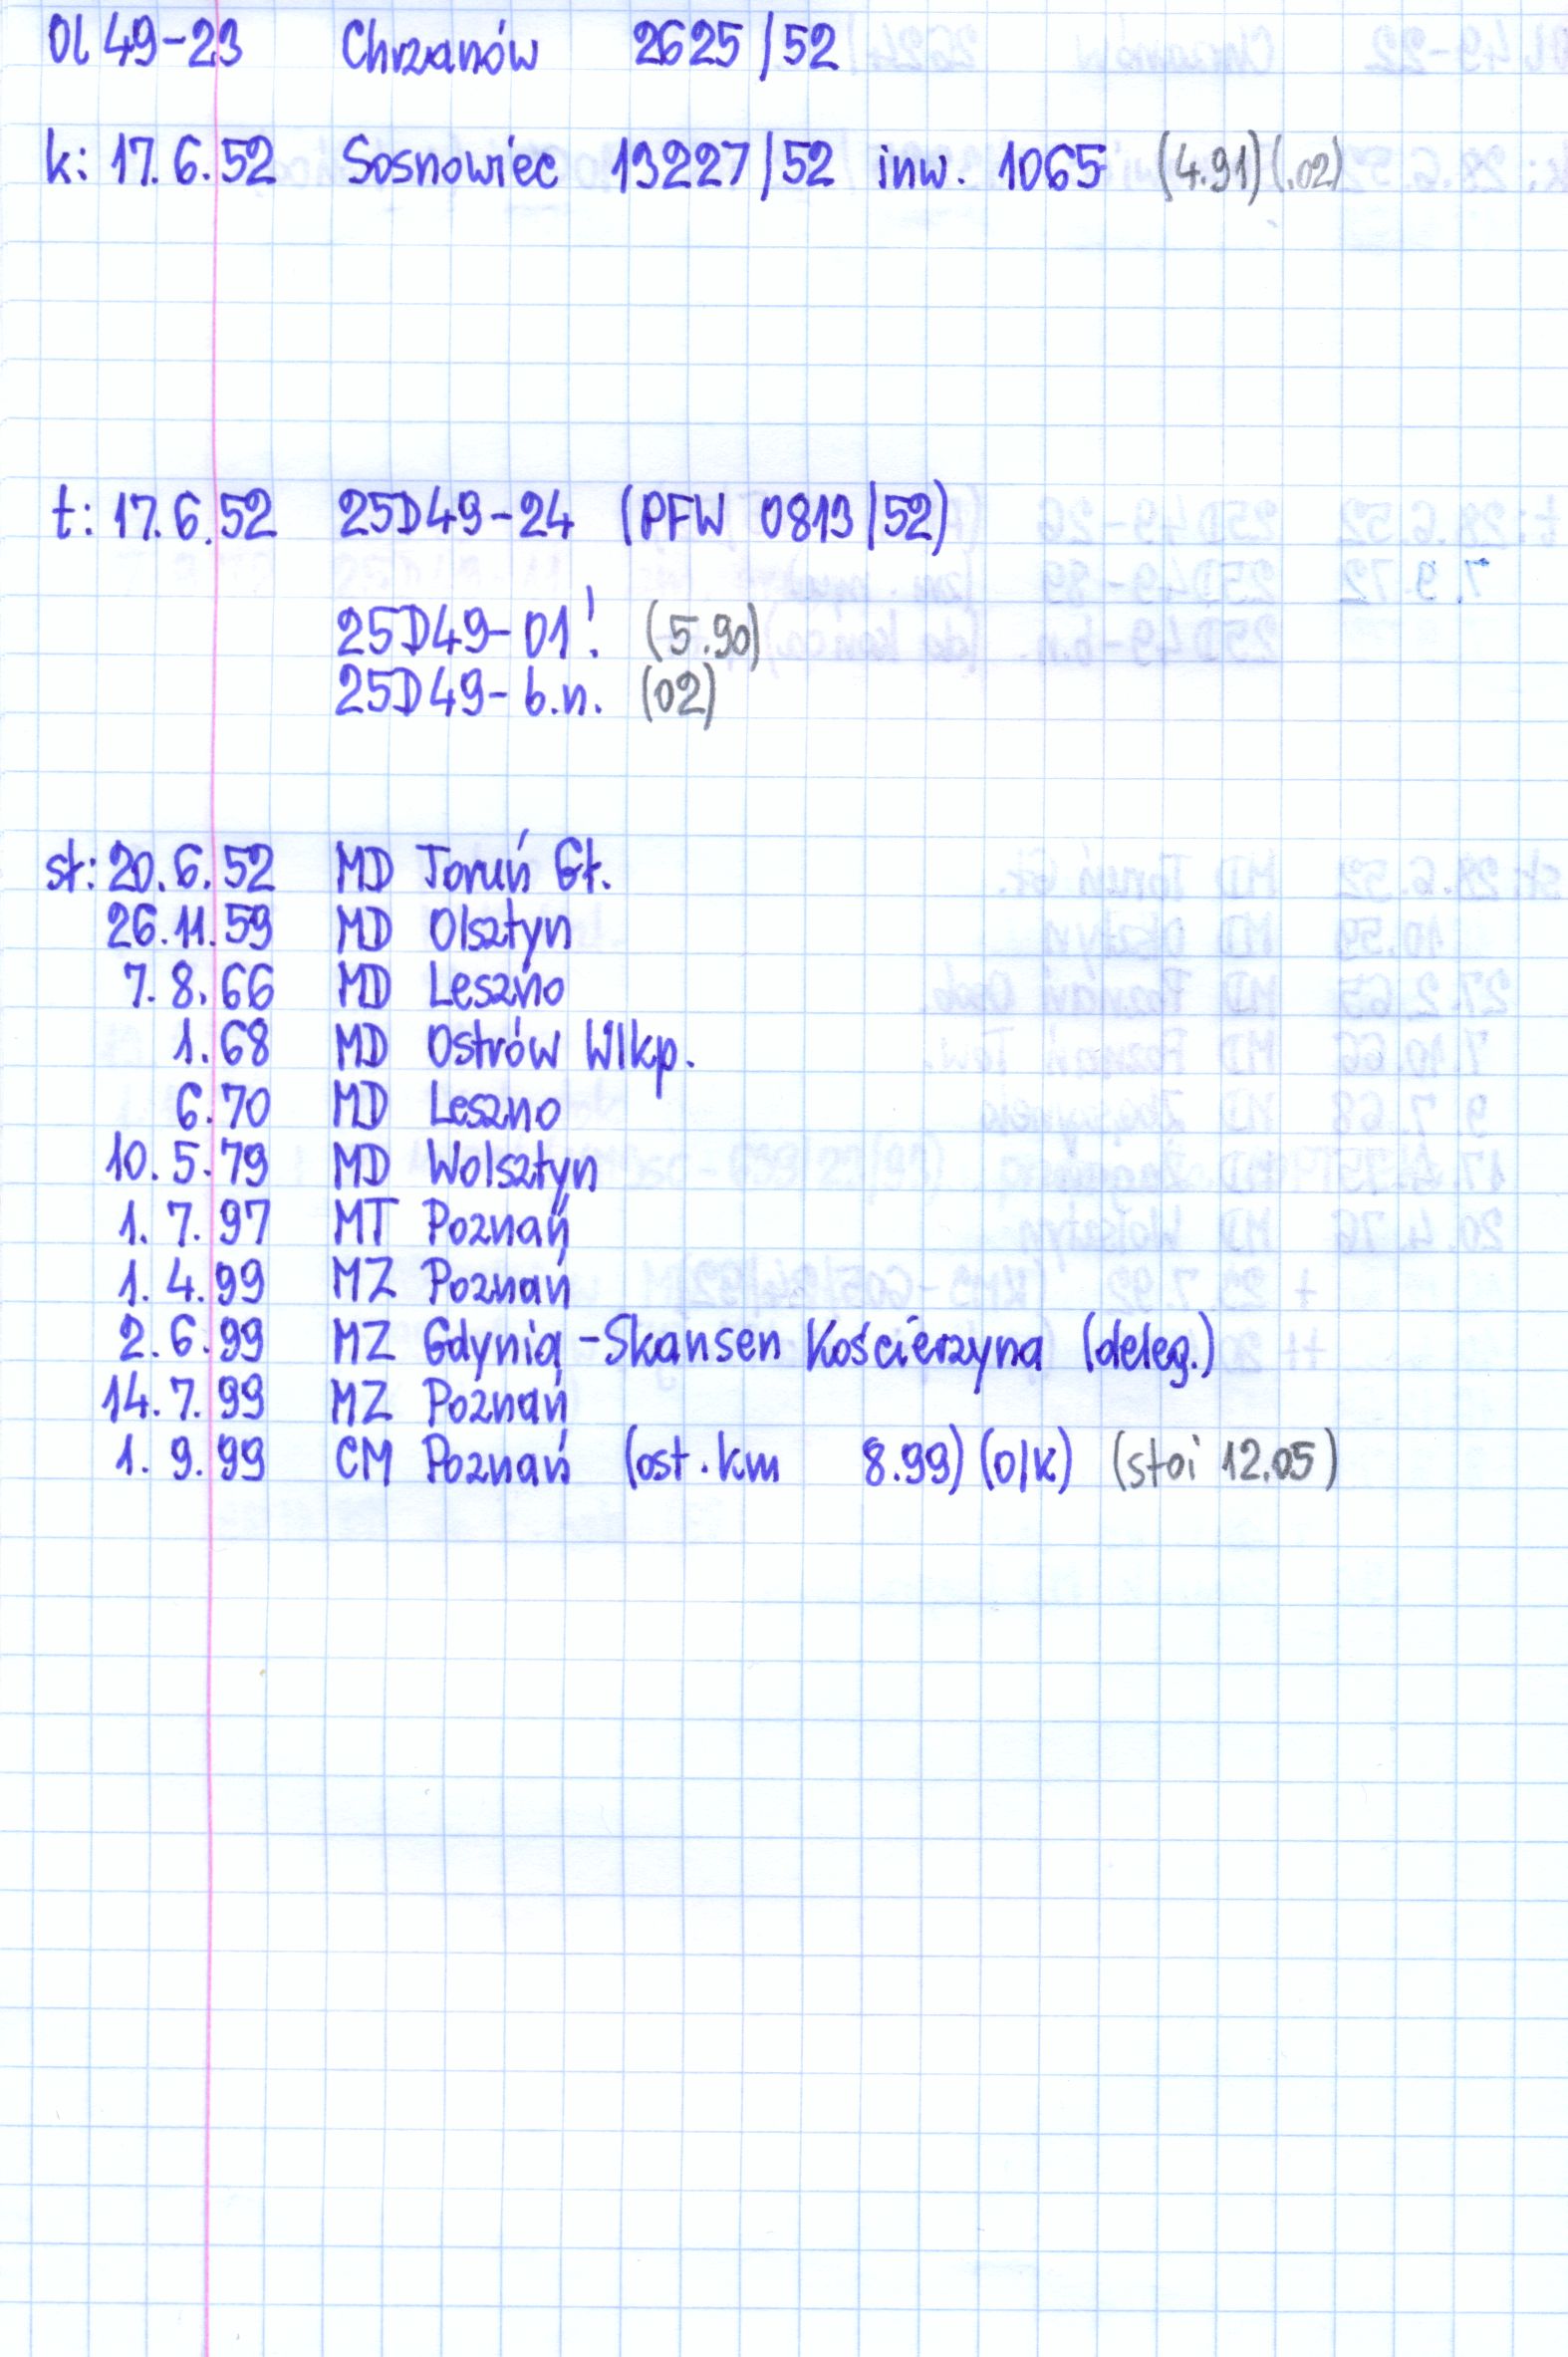 Ol 49-23 Chrzanów 2625/52
k: 17.6.52 Sosnowiec 13227/52 inw. 1065 (4.91)(.02)
t: 17.6.52 25D49-24 (PFW 0813/52)
25D49-01! (5.90)
25D49-b.n. (02)
st: 20.6.52 MD Toruń Gł.
26.11.59 MD Olsztyn
7.8.66 MD Leszno
1.68 MD Ostrów Wlkp.
6.70 MD Leszno
10.5.79 MD Wolsztyn
1.7.97 MT Poznań
1.4.99 MZ Poznań
2.6.99 MZ Gdynia-Skansen Kościerzyna (deleg.)
14.7.99 MZ Poznań
1.9.99 CM Poznań (ost.km 8.99)(O/K) (stoi 12.05)